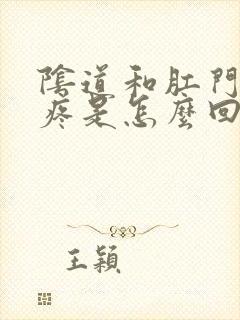 陰道和肛門
疼是怎麼回
王穎